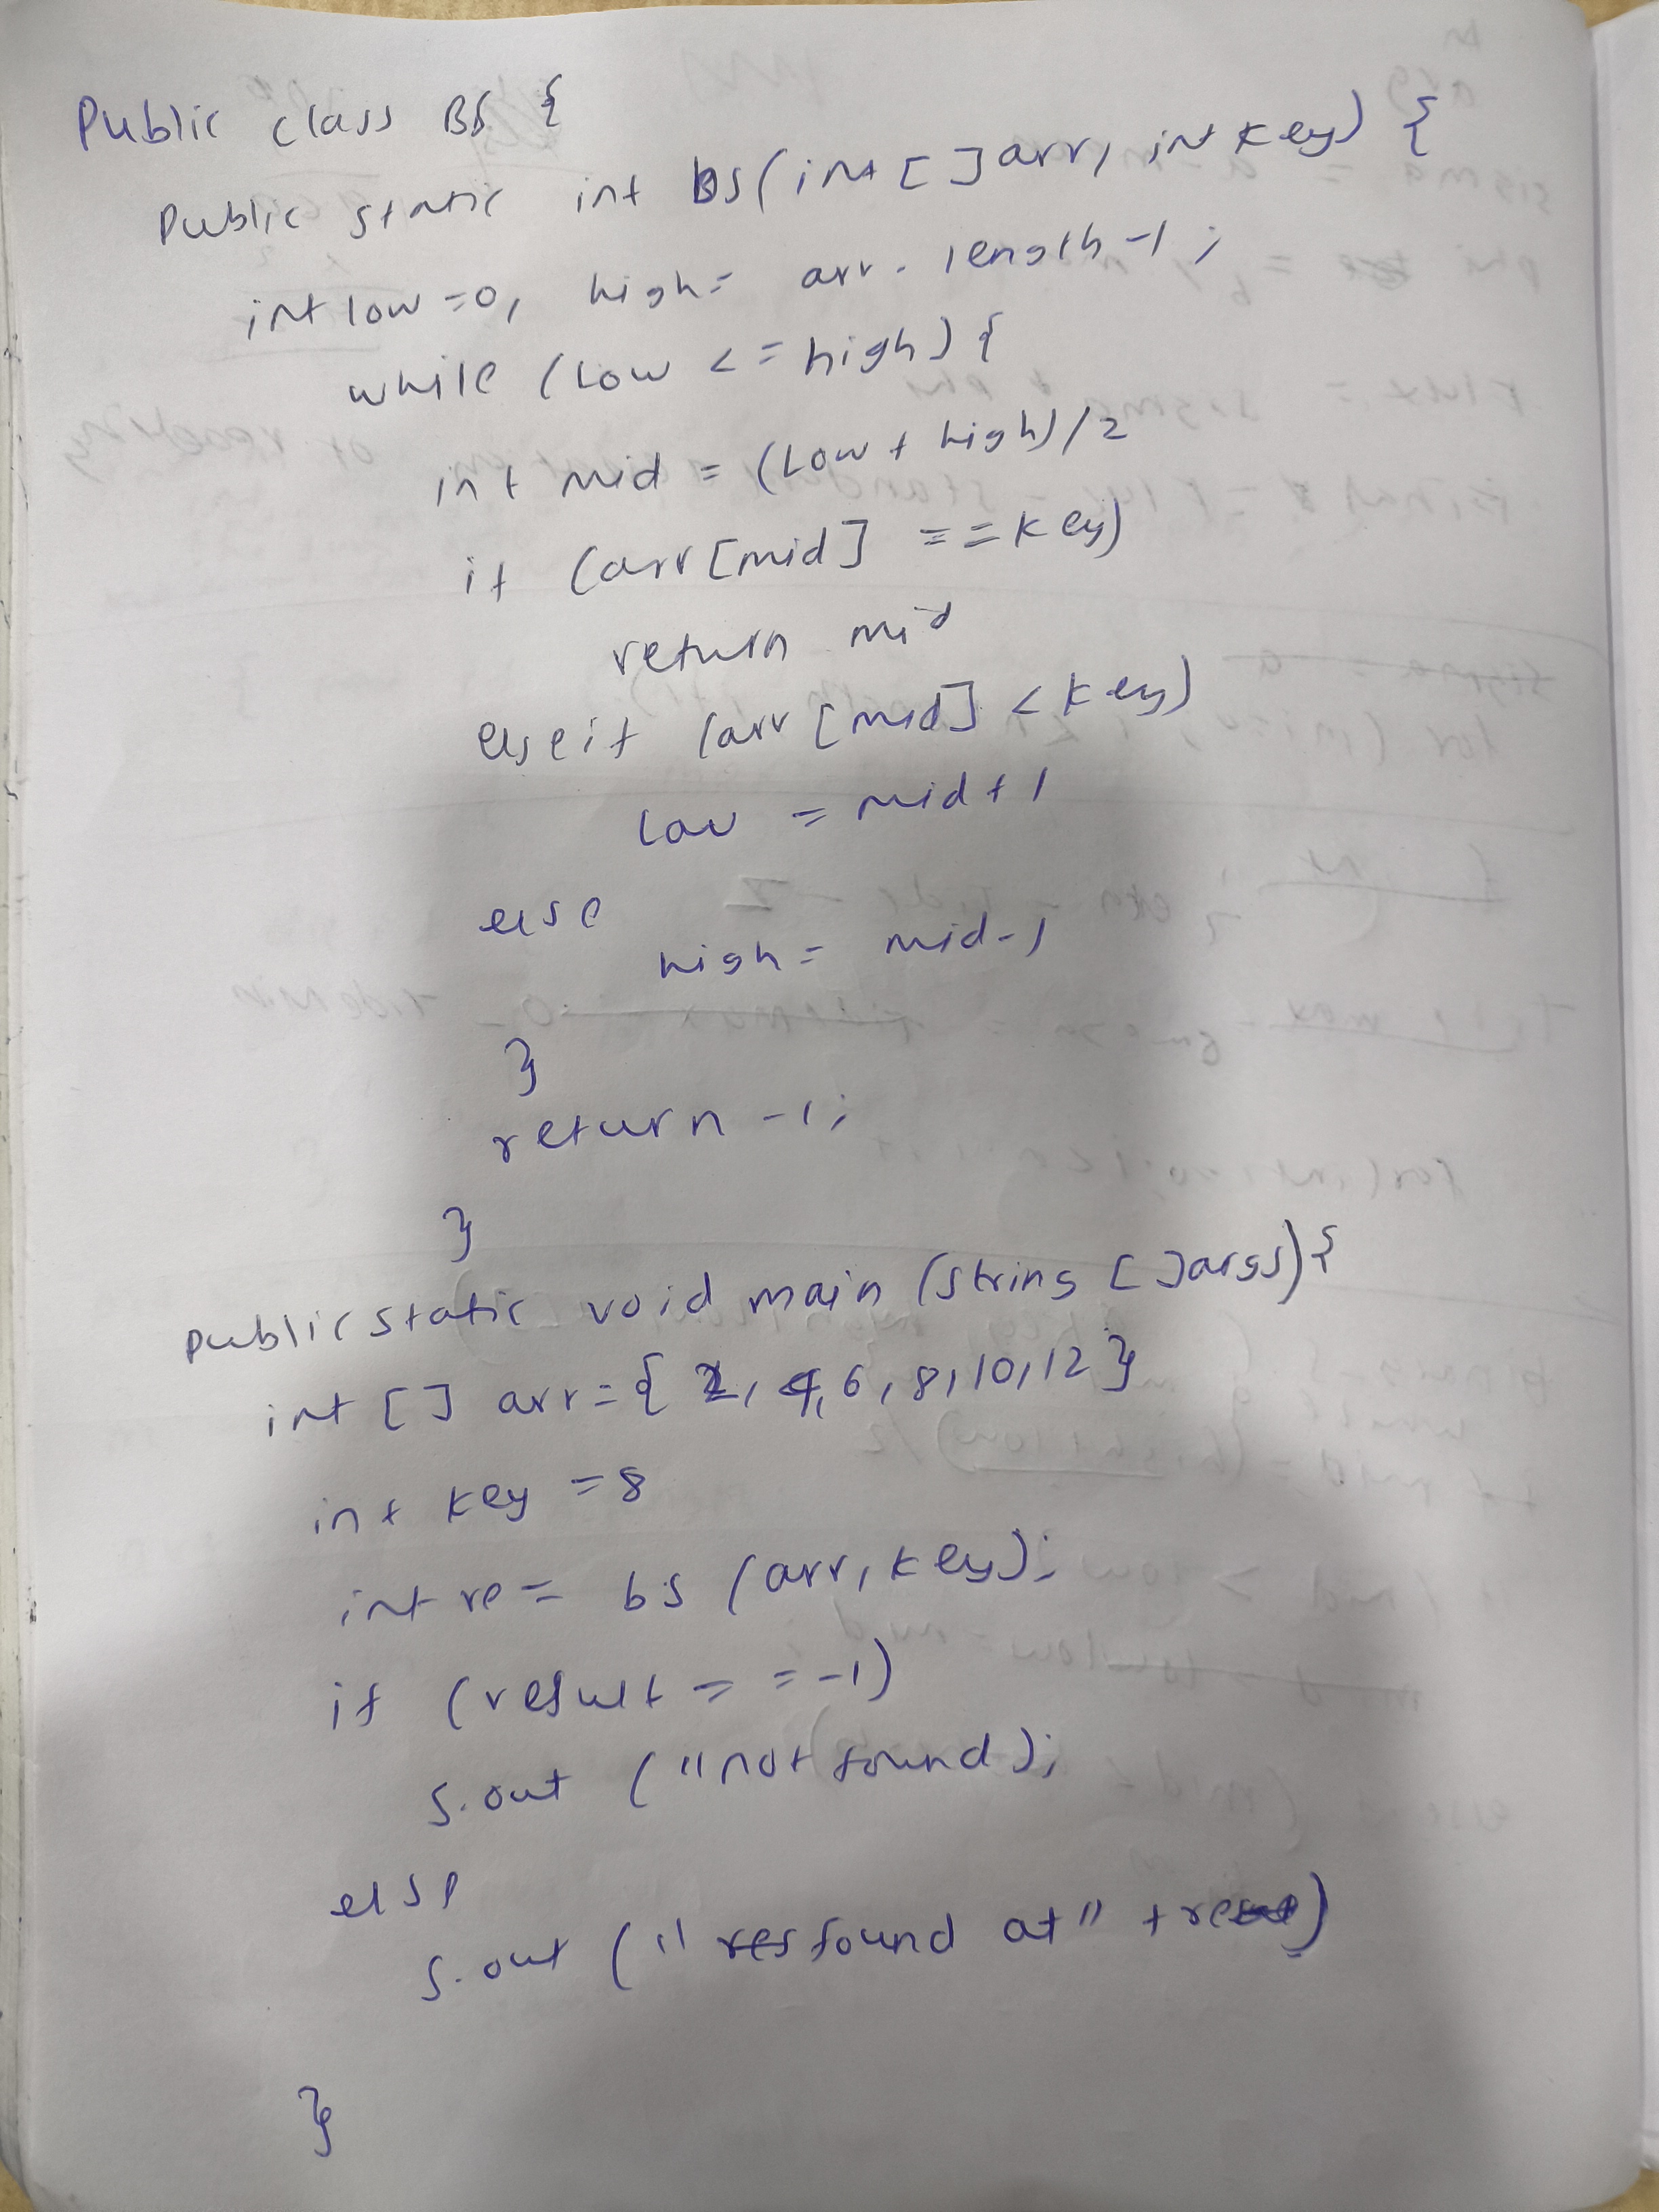 Public class BS {
Public static int bs(int []arr, int key) {
int low =0, high= arr. length-1 ;
while (low <= high) {
int mid = (low + high)/2
if (arr[mid] ==key)
return mid
else if (arr [mid] < key)
low = mid+1
else
high = mid-1
}
return -1;
}
public static void main (string []args){
int [] arr={ 2, 4, 6, 8, 10, 12 }
int key =8
int re = bs (arr, key);
if (result = = -1)
S.out ("not found);
else
S.out (" found at" + re)
}